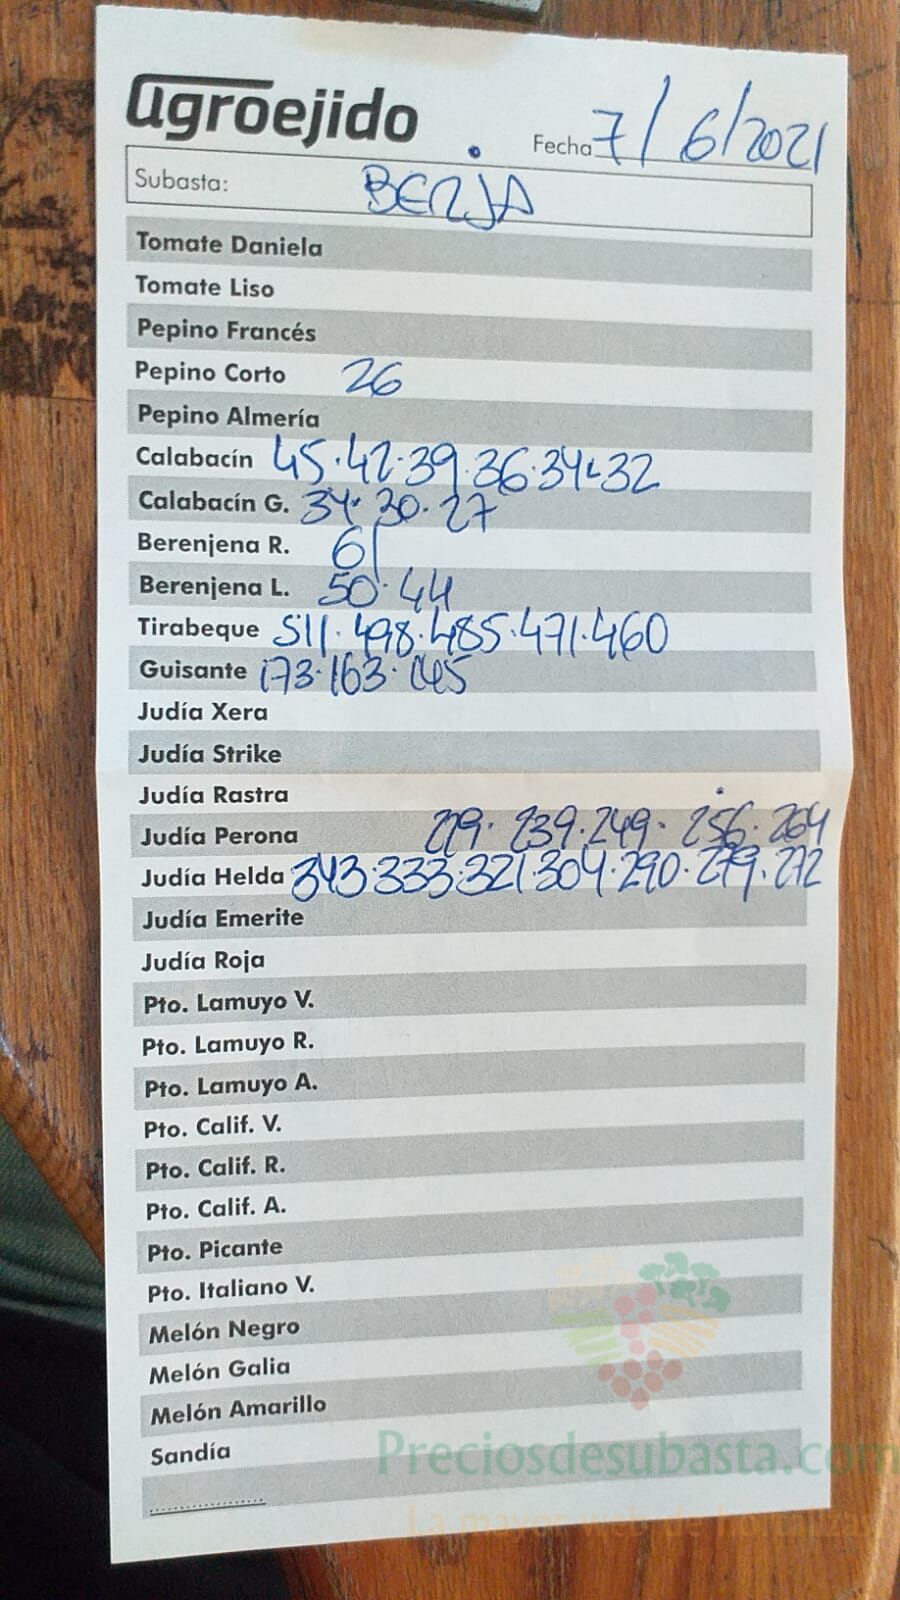 agroejido
Fecha 7/6/2021
Subasta: BERJA
Tomate Daniela
Tomate Liso
Pepino Francés
Pepino Corto 26
Pepino Almería
Calabacín 45.42.39.36.34.32
Calabacín G. 34.30.27
Berenjena R. 61
Berenjena L. 50.44
Tirabeque 511.498.485.471.460
Guisante 173.163.145
Judía Xera
Judía Strike
Judía Rastra
Judía Perona 239.249.256.264
Judía Helda 343.333.321.304.290.279.272
Judía Emerite
Judía Roja
Pto. Lamuyo V.
Pto. Lamuyo R.
Pto. Lamuyo A.
Pto. Calif. V.
Pto. Calif. R.
Pto. Calif. A.
Pto. Picante
Pto. Italiano V.
Melón Negro
Melón Galia
Melón Amarillo
Sandía
Preciosdesubasta.com
La mayor web de hortalizas